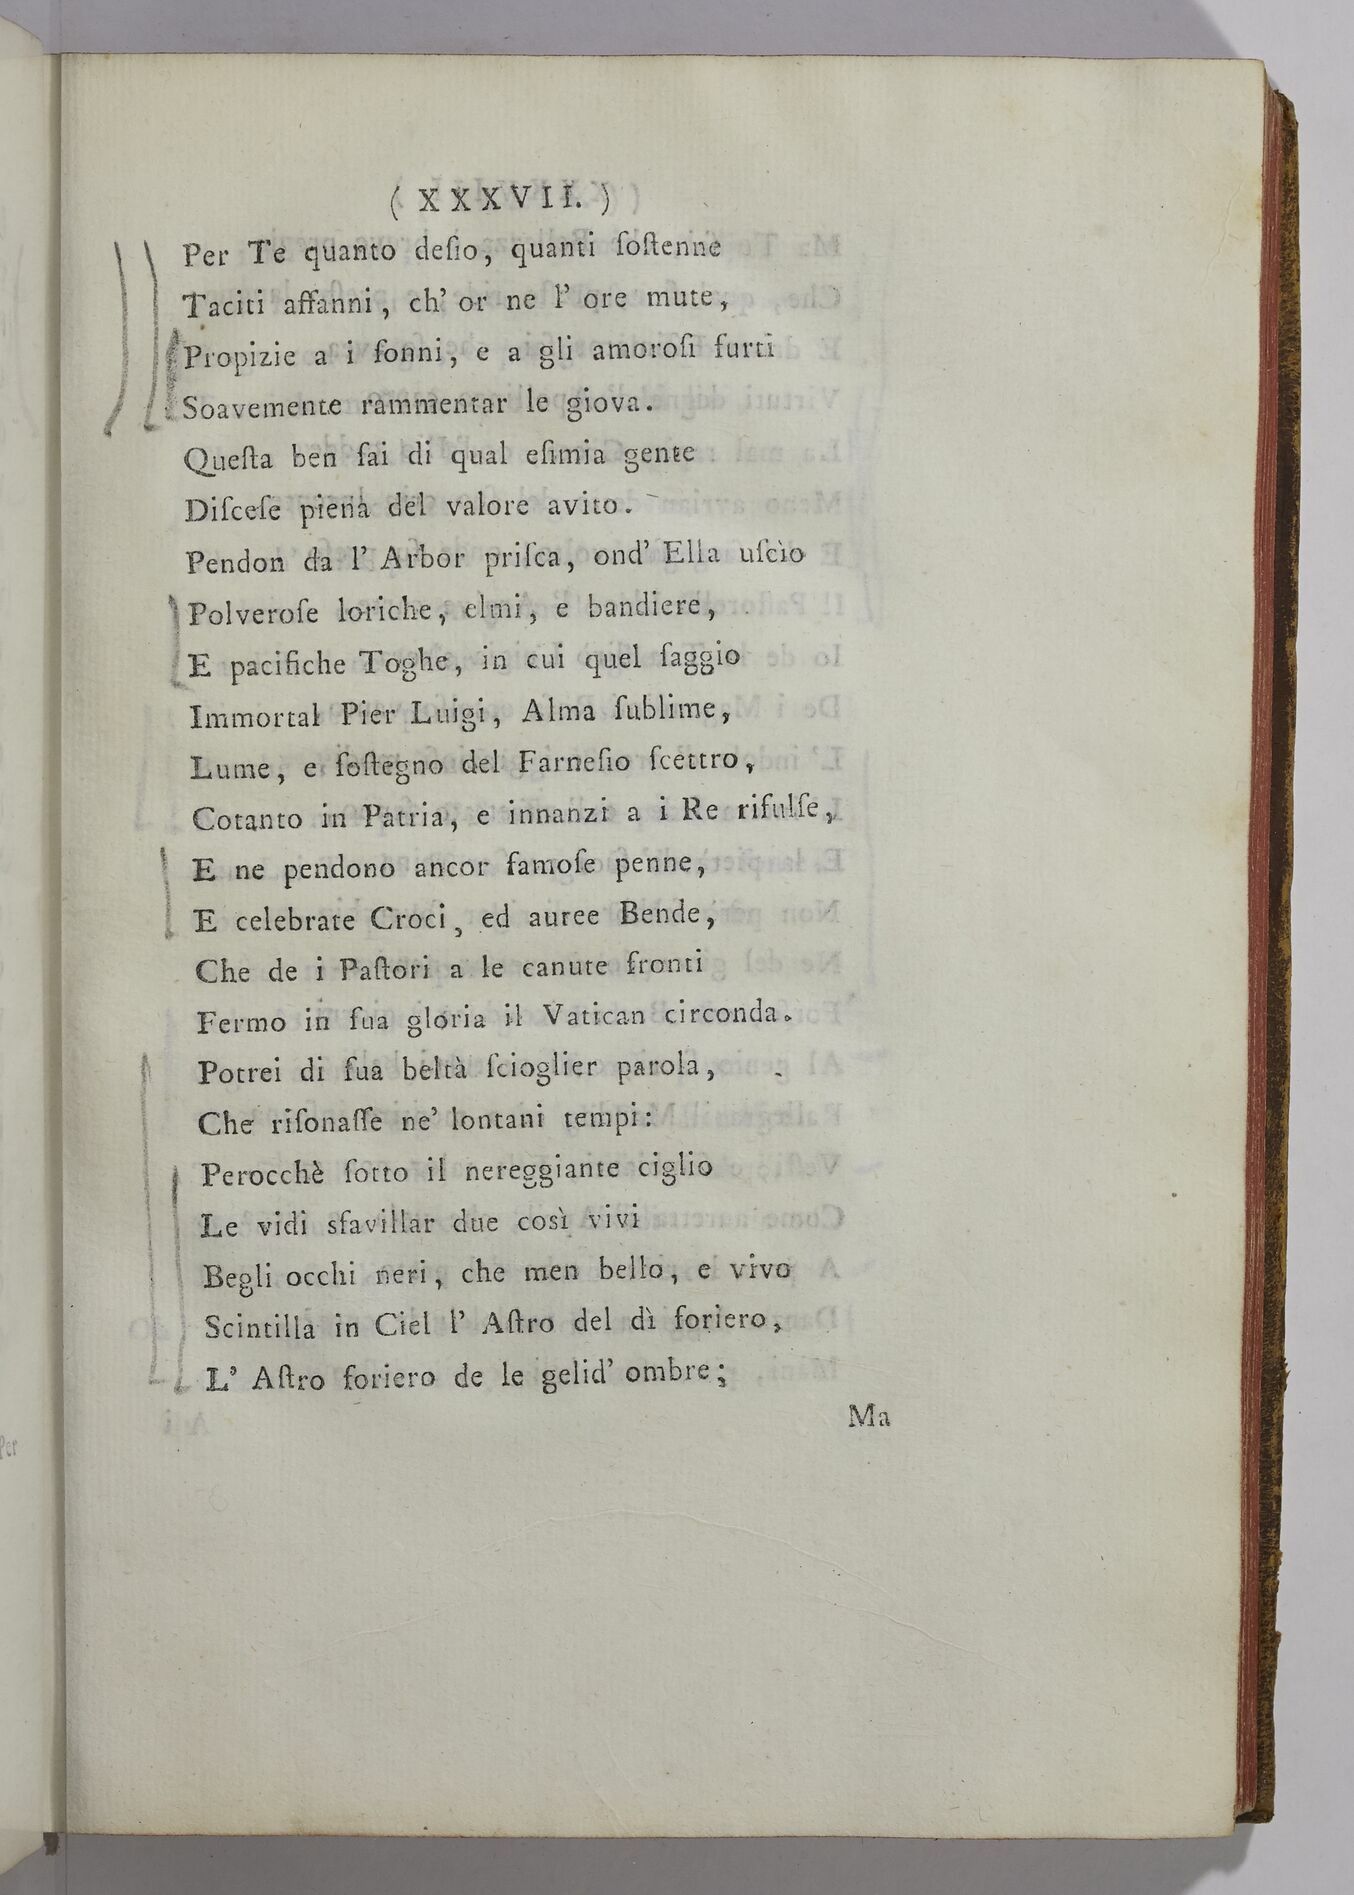 ( XXXVII. )
Per Te quanto deſio, quanti ſoſtenne
Taciti affanni, ch' or ne l' ore mute,
Propizie a i ſonni, e a gli amoroſi furti
Soavemente rammentar le giova.
Queſta ben ſai di qual eſimia gente
Diſceſe piena del valore avito.
Pendon da l' Arbor priſca, ond' Ella uſcìo
Polveroſe loriche, elmi, e bandiere,
E pacifiche Toghe, in cui quel ſaggio
Immortal Pier Luigi, Alma ſublime,
Lume, e ſoſtegno del Farneſio ſcettro,
Cotanto in Patria, e innanzi a i Re rifulſe,
E ne pendono ancor famoſe penne,
E celebrate Croci, ed auree Bende,
Che de i Paſtori a le canute fronti
Fermo in ſua gloria il Vatican circonda.
Potrei di ſua beltà ſcioglier parola,
Che riſonaſſe ne' lontani tempi:
Perocchè ſotto il nereggiante ciglio
Le vidi sfavillar due così vivi
Begli occhi neri, che men bello, e vivo
Scintilla in Ciel l' Aſtro del dì foriero,
L' Aſtro foriero de le gelid' ombre;
Ma
Per